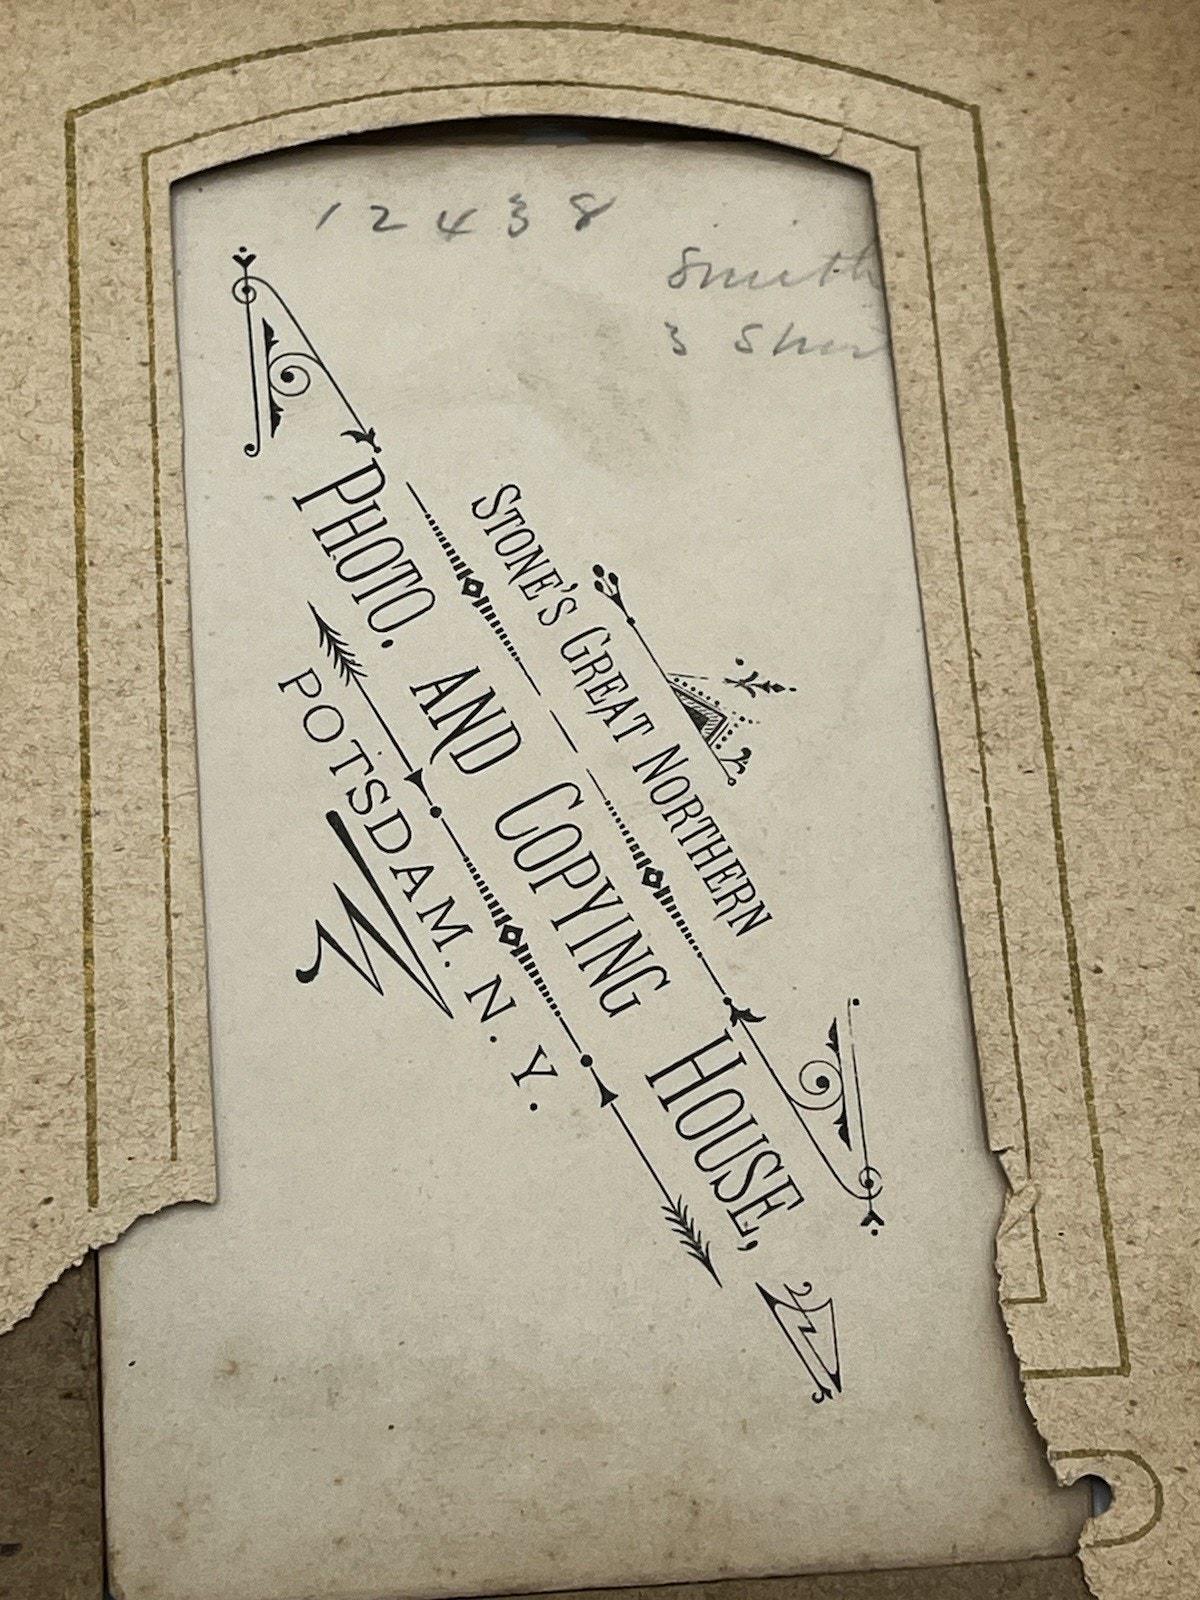 12438
Smith
3
STONE'S GREAT NORTHERN
PHOTO. AND COPYING HOUSE,
POTSDAM. N. Y.